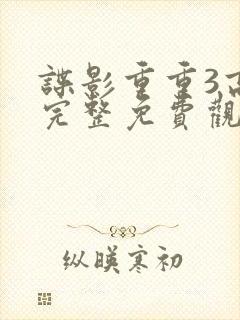 諜影重重3,高
完整免費觀
纵暎寒初